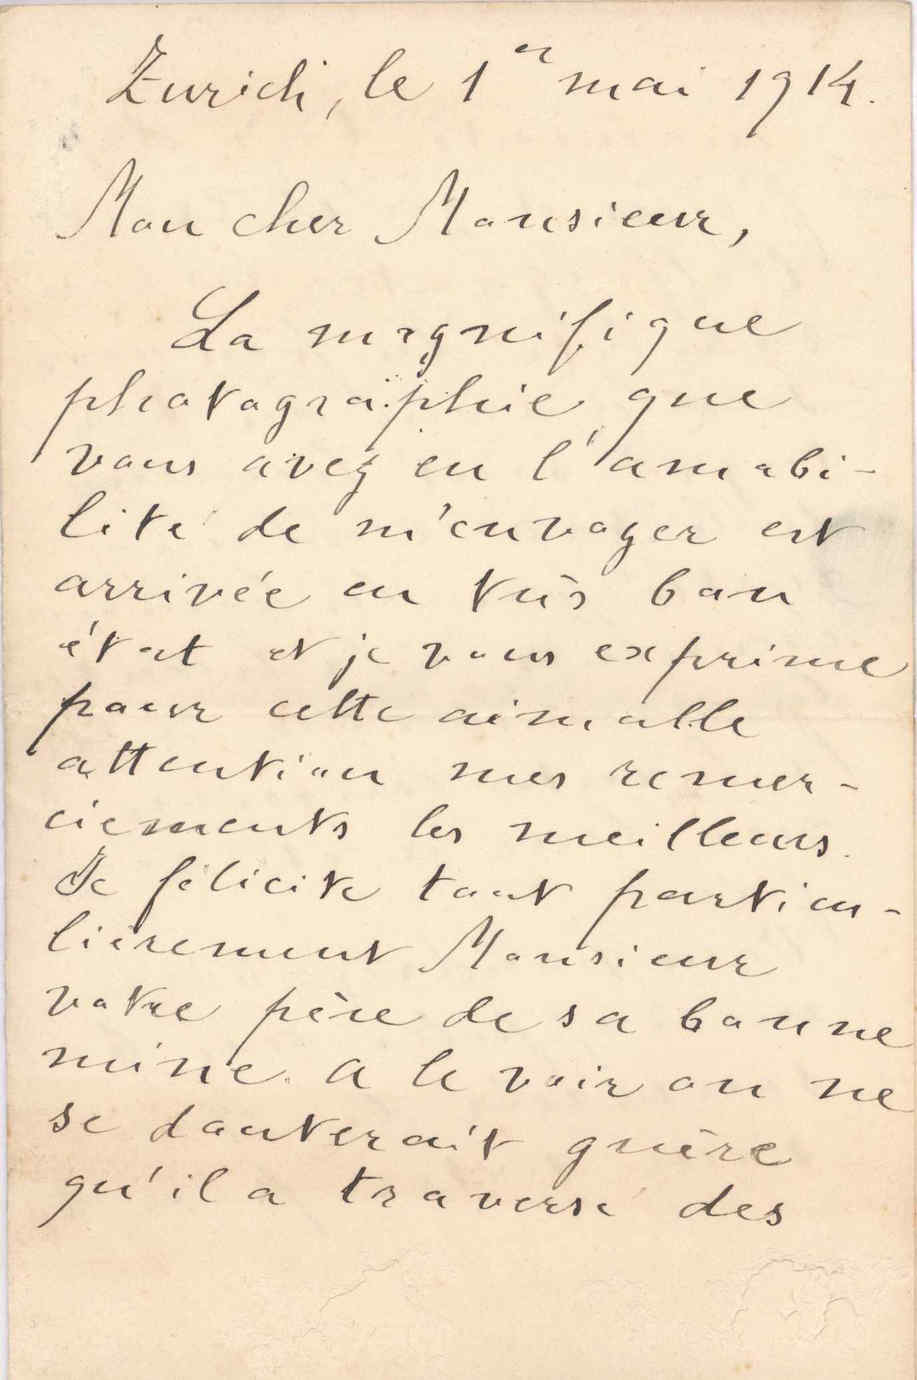 Zurich, le 1er mai 1914.
Mon cher Monsieur,
La magnifique
photographie que
vous avez eu l'amabi-
lité de m'envoyer est
arrivée en très bon
état et je vous exprime
pour cette aimable
attention mes remer-
ciements les meilleurs.
Je félicite tout particu-
lièrement Monsieur
votre père de sa bonne
mine. A le voir on ne
se douterait guère
qu'il a traversé des